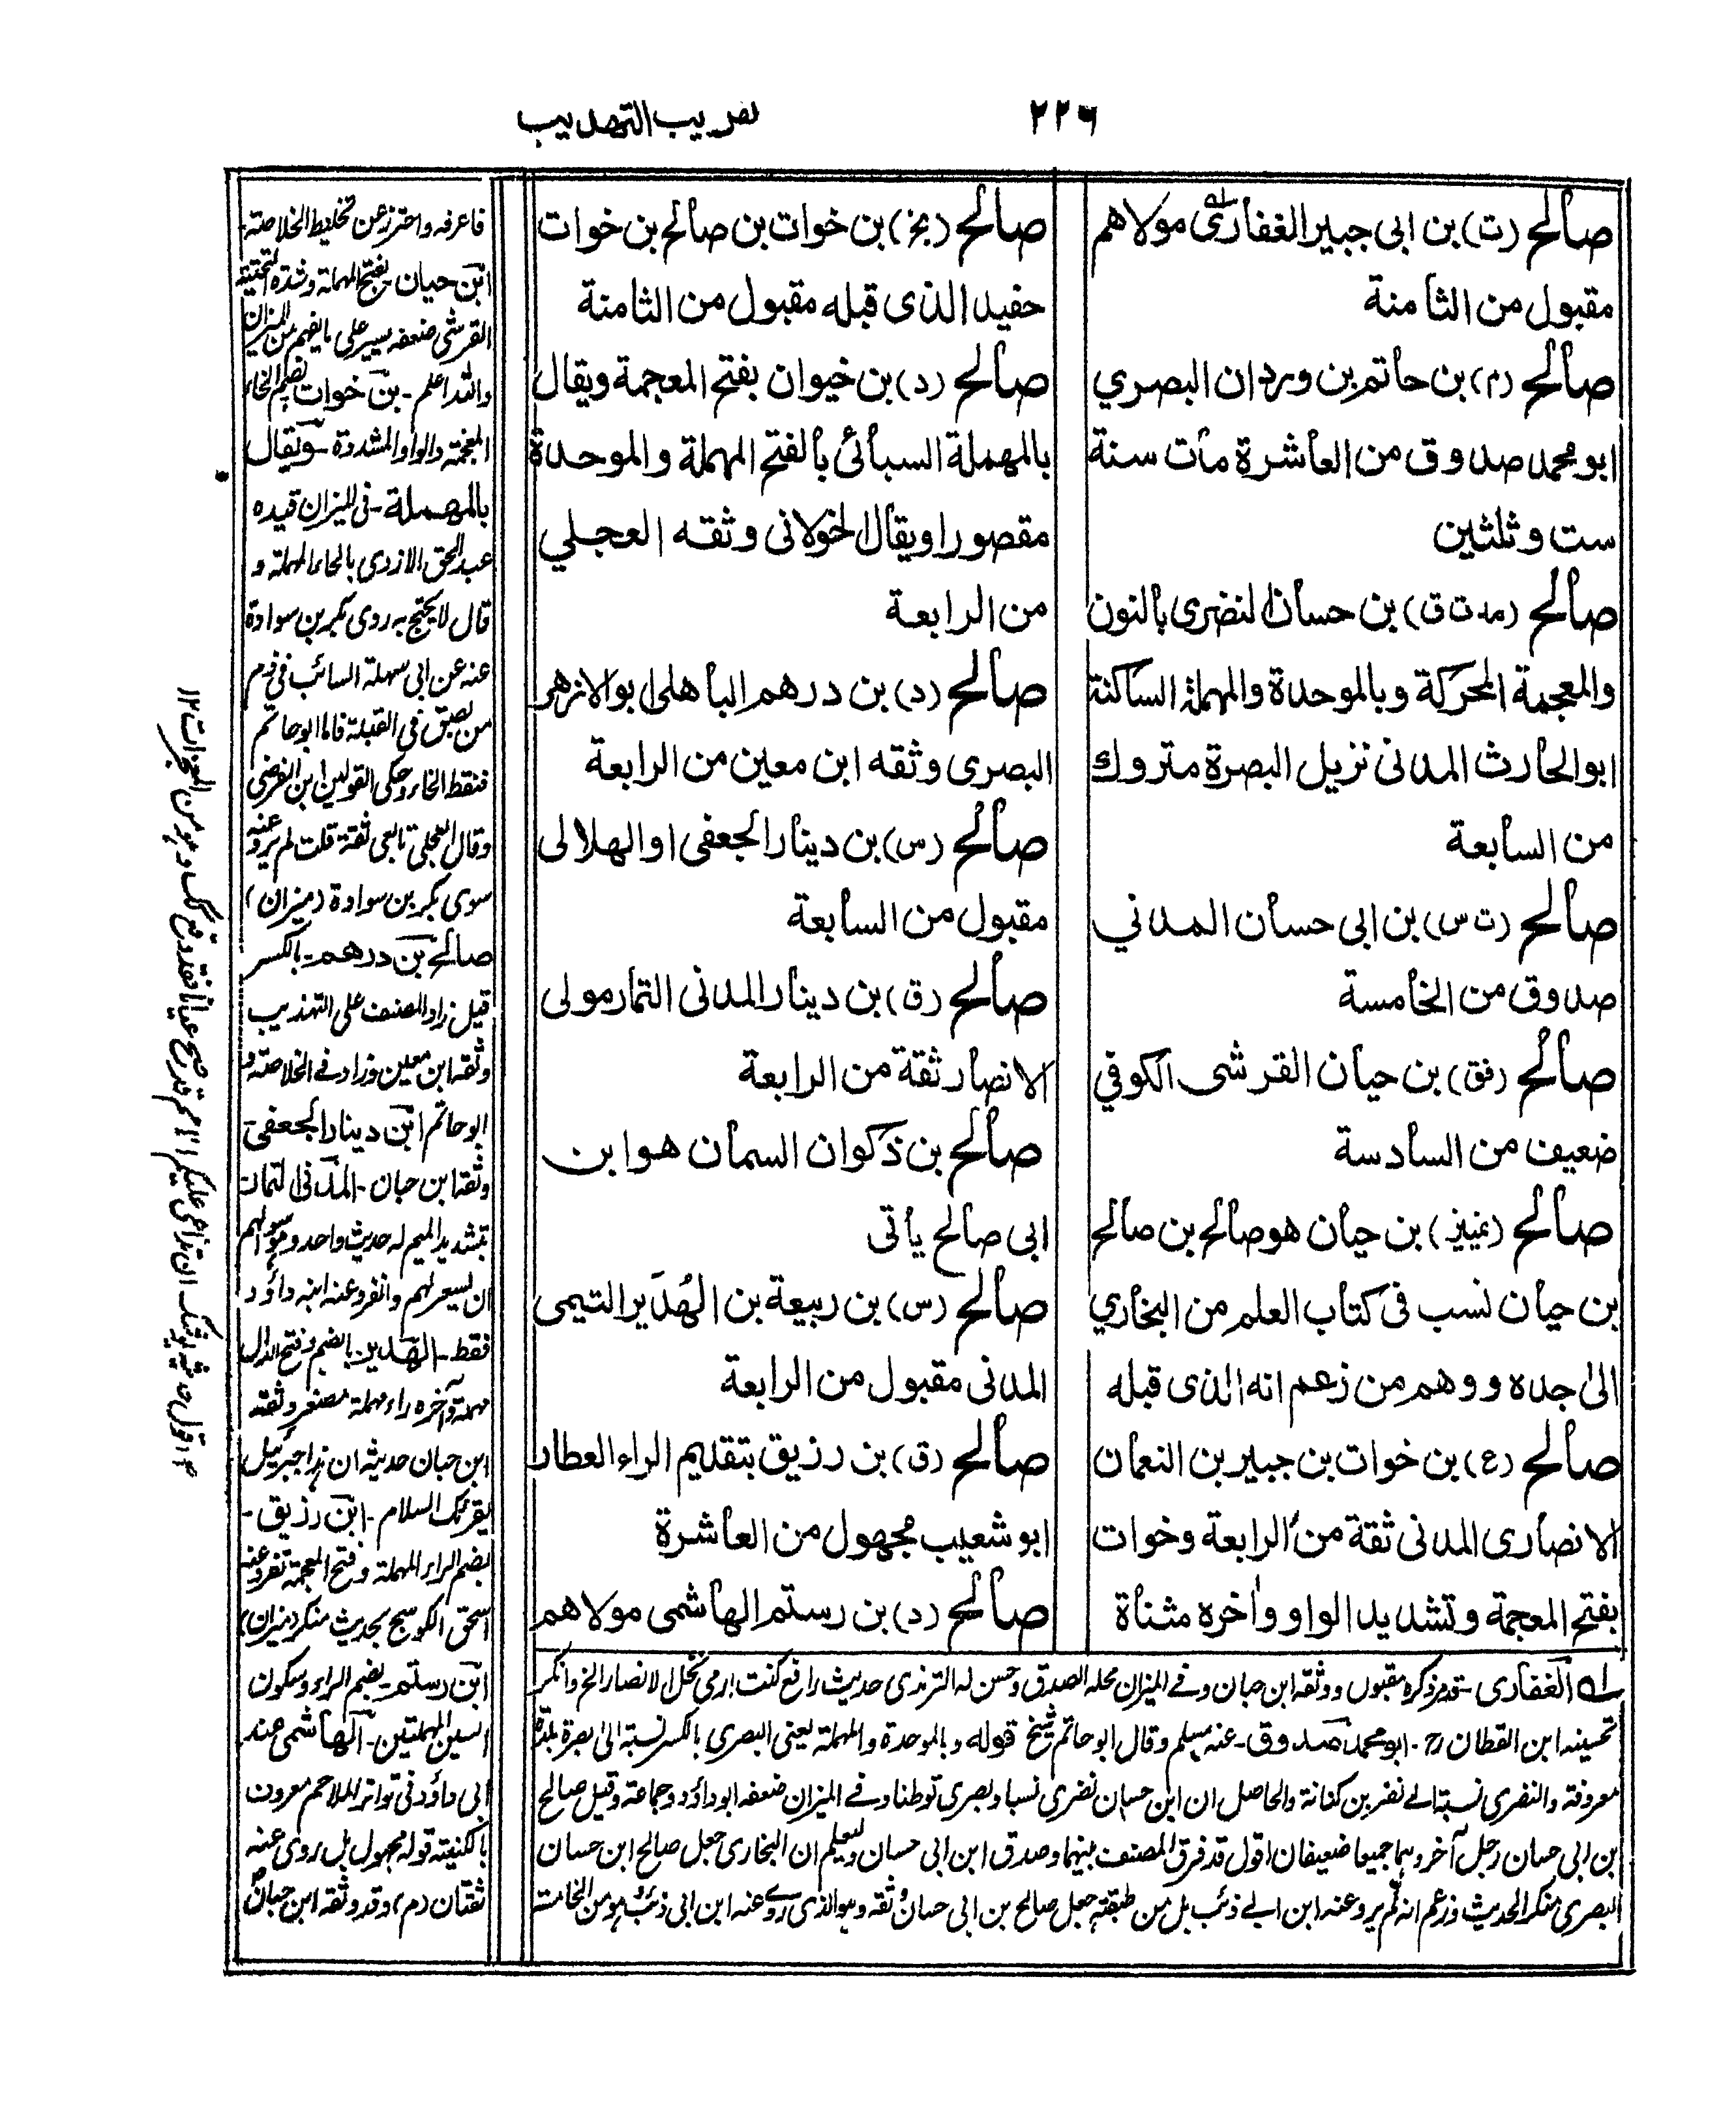 ٢٢٦
تقريب التهذيب
صالح (ت) بن ابى جبير الغفارى مولاهم
مقبول من الثامنة
صالح (م) بن حاتم بن وردان البصري
ابو محمد صدوق من العاشرة مات سنة
ست وثلثين
صالح (مد ت ق) بن حسان النضرى بالنون
والمعجمة المحركة وبالموحدة والمهملة الساكنة
ابو الحارث المدنى نزيل البصرة متروك
من السابعة
صالح (ت س) بن ابى حسان المدني
صدوق من الخامسة
صالح (فق) بن حيان القرشى الكوفي
ضعيف من السادسة
صالح (تمييز) بن حيان هو صالح بن صالح
بن حيان نسب فى كتاب العلم من البخاري
الى جده ووهم من زعم انه الذى قبله
صالح (ع) بن خوات بن جبير بن النعمان
الانصارى المدنى ثقة من الرابعة وخوات
بفتح المعجمة وتشديد الواو واخره مثناة
صالح (بخ) بن خوات بن صالح بن خوات
حفيد الذى قبله مقبول من الثامنة
صالح (د) بن خيوان بفتح المعجمة ويقال
بالمهملة السبأئى بالفتح المهملة والموحدة
مقصورا ويقال الخولانى وثقه العجلي
من الرابعة
صالح (د) بن درهم الباهلى ابو الازهر
البصرى وثقه ابن معين من الرابعة
صالح (س) بن دينار الجعفى او الهلالى
مقبول من السابعة
صالح (ق) بن دينار المدنى التمار مولى
الانصار ثقة من الرابعة
صالح بن ذكوان السمان هو ابن
ابى صالح يأتى
صالح (س) بن ربيعة بن الهُدَير التيمى
المدنى مقبول من الرابعة
صالح (ق) بن رزيق بتقديم الراء العطار
ابو شعيب مجهول من العاشرة
صالح (د) بن رستم الهاشمى مولاهم
له الغفارى - قدم ذكره مقبول ووثقه ابن حبان وفے الميزان محله الصدق وحسن له الترمذى حديث رافع كنت ارمى نخل الانصار الخ وانكر
تحسينه ابن القطان رح - ابو محمد صدوق - عنه مسلم وقال ابو حاتم شيخ قوله وبالموحدة والمهملة يعنى البصري بالكسر نسبة الى بصرة بلدة
معروفة والنضرى نسبة الے نضر بن كنانة والحاصل ان ابن حسان نضرى نسبا وبصرى توطنا وفے الميزان ضعفه ابو داؤد وجماعة وقيل صالح
بن ابى حسان رجل آخر وہما جميعا ضعيفان اقول قد فرق المصنف بينهما وصدق ابن ابى حسان وليعلم ان البخارى جعل صالح ابن حسان
البصري منكر الحديث وزعم انه لم يرو عنه ابن ابے ذئب بل من طبقته جعل صالح بن ابى حسان ثقه وهو الذى روے عنه ابن ابى ذئب هو من الخامسة
فاعرفه واحترز عن تخليط الخلاصة -
ابن حيان بفتح المهملة وشدة التحتية
القرشى ضعفه يسير على ما يفهم من الميزان
والله اعلم - بن خوات بفتح الخاء
المعجمة والواو المشددة - ويقال
بالمهملة - فى الميزان قيده
عبد الحق الازدى بالحاء المهملة و
قال لا يحتج به روى بكر بن سوادة
عنه عن ابى سهلة السائب فى ذم
من بصق فى القبلة فاما ابو حاتم
فنقط الخاء وحكى القولين ابن الفرضى
وقال العجلى تابعى ثقة قلت لم يرو عنه
سوى بكر بن سوادة (ميزان)
صالح بن درهم - بالكسر
قيل زاد المصنف على التهذيب
وثقه ابن معين وزاد فے الخلاصة و
ابو حاتم ابن دينار الجعفى
وثقه ابن حبان - المدنى التمار
بتشديد الميم له حديث واحد وهو سوالهم
ان يسعر لهم وانفرد عنه ابنه داؤد
فقط - الهدير - بالضم وفتح الدال
مهملة وآخره راء مهملة مصغر وثقه
ابن حبان حديثه ان هذا جبرئيل
يقرئك السلام - ابن رزيق -
بضم الراء المهملة وفتح المعجمة تفرد عنه
اسحق الكوسج بحديث منكر (ميزان)
ابن رستم - بضم الراء وسكون
السين المهملتين - الهاشمى عند
ابى داؤد فى تواتر الملاحم معروف
بالكنية قوله مجهول بل روى عنه
ثقتان (م) وقد وثقه ابن حبان